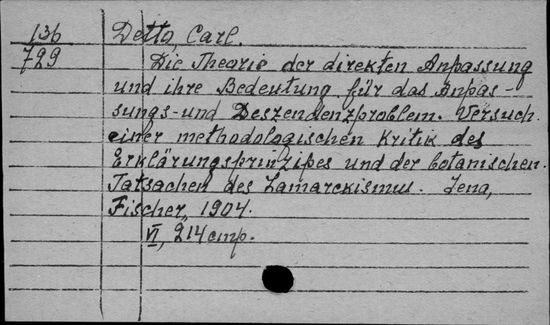 136
729
Detto, Carl.
Die Theorie der direkten Anpassung
und ihre Bedeutung für das Anpas-
sungs- und Deszendenzproblem. Versuch
einer methodologischen Kritik des
Erklärungsprinzipes und der botanischen
Tatsachen des Lamarckismus. Jena,
Fischer, 1904.
VI, 214 cmp.